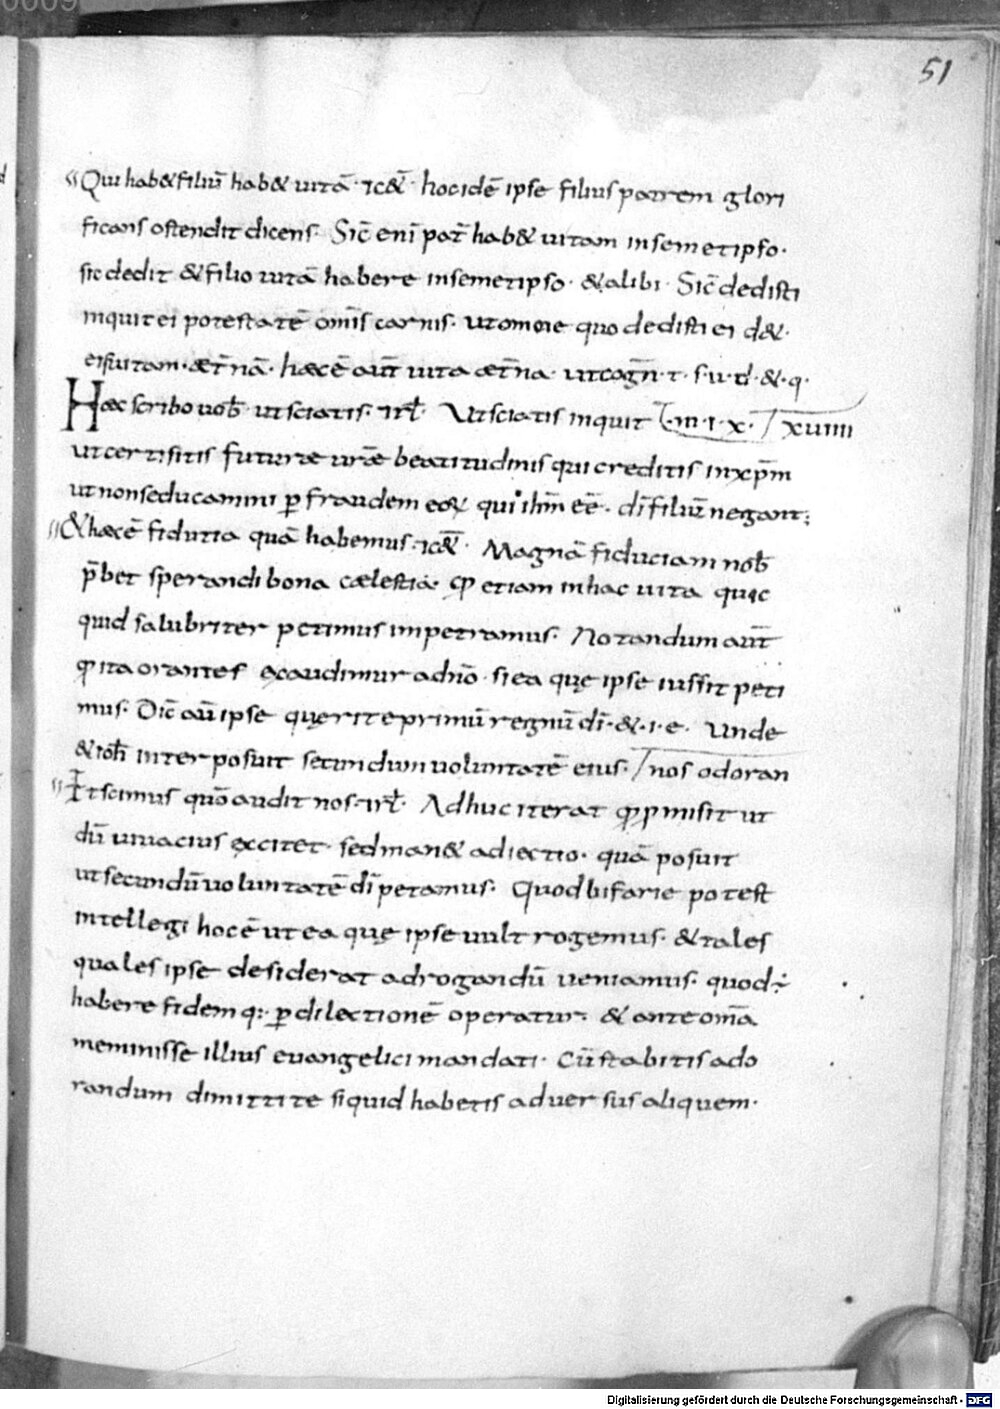 51
Qui hab& filiū hab& uitā · rc&̄ · hoc idē ipse filius patrem glori
ficans ostendit dicens · Sic̄ enī pat̄ hab& uitam in semetipso ·
sic dedit & filio uitā habere in semetipso · & alibi · Sic̄ dedisti
inquit ei potestatē omīs carnis · ut omne quod dedisti ei d& ·
eis uitam · æt̄nā · hæc ē aūt uita æt̄na · ut cogn̄ · t · s · u · d̄ · & · q ·
Hæc scribo uob̄ · ut sciatis · rl̄ · Ut sciatis inquit · m · i · x · xuiiii
ut certi sitis futuræ urǣ beatitudinis qui creditis in xp̄m
ut non seducamini p̱ fraudem eor̄ qui ihm̄ eē · dī filiū negant ;
& hæc ē fidutia quā habemus · rc&̄ · Magnā fiduciam nob̄
p̄bet sperandi bona cælestia · qꝫ etiam in hac uita quic
quid salubriter petimus impetramus · Notandum aūt
qꝫ ita orantes exaudimur a dn̄o · si ea quę ipse iussit peti
mus · Dic̄ aū ipse quęrite primū regnū dī · & · i · e · Unde
& ioh̄ inter posuit secundum uoluntatē eius · / nos odoran
Et scimus quō audit nos · rl̄ · Adhuc iterat qꝫ p̱misit ut
dū uiuacius excitet · sed man& adiectio · quā posuit
ut secundū uoluntatē dī petamus · Quod bifarie potest
intellegi hoc ē ut ea quę ipse uult rogemus · & tales
quales ipse desiderat ad rogandū ueniamus · quod ÷
habere fidem q: p̱ dilectionē operatur · & ante om̄a
meminisse illius euangelici mandati · Cū stabitis ad o
randum dimittite si quid habetis aduersus aliquem ·
Digitalisierung gefördert durch die Deutsche Forschungsgemeinschaft - DFG